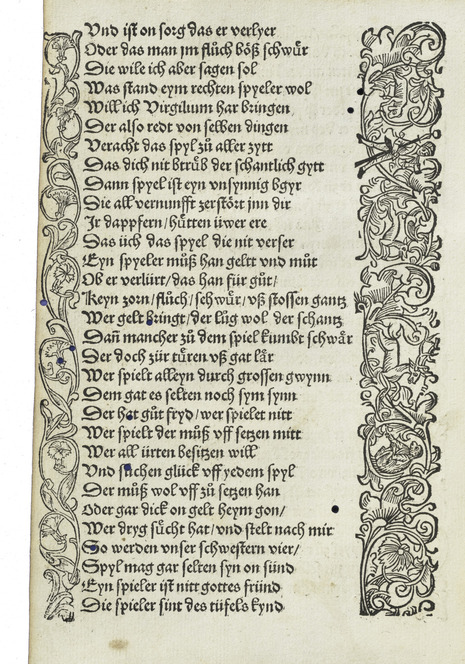 Vnd iſt on ſorg das er verlyer
Oder das man jm flüch böß ſchwůr
Die wile ich aber ſagen ſol
Was ſtand eym rechten ſpyeler wol
Will ich Virgilium har bringen
Der alſo redt von ſelben dingen
Veracht das ſpyl zů aller zytt
Das dich nit btrůb der ſchantlich gytt
Dann ſpyel iſt eyn vnſynnig bgyr
Die all vernunfft zerſtört jnn dir
Jr dappfern / hůtten üwer ere
Das üch das ſpyel die nit verſer
Eyn ſpyeler můß han gelt vnd můt
Ob er verlürt / das han für gůt /
Keyn zorn / flůch / ſchwůr / vß ſtoſſen gantz
Wer gelt bringt / der lůg wol der ſchantz
Dañ mancher zů dem ſpiel kumbt ſchwår
Der doch zůr türen vß gat lår
Wer ſpielt alleyn durch groſſen gwynn
Dem gat es ſelten noch ſym ſynn
Der hat gůt fryd / wer ſpielet nitt
Wer ſpielt der můß vff ſetzen mitt
Wer all ürten beſitzen will
Vnd ſůchen glück vff yedem ſpyl
Der můß wol vff zů ſetzen han
Oder gar dick on gelt heym gon /
Wer dryg ſücht hat / vnd ſtelt nach mir
So werden vnſer ſchweſtern vier /
Spyl mag gar ſelten ſyn on ſünd
Eyn ſpieler iſt nitt gottes fründ
Die ſpieler ſint des tüfels kynd